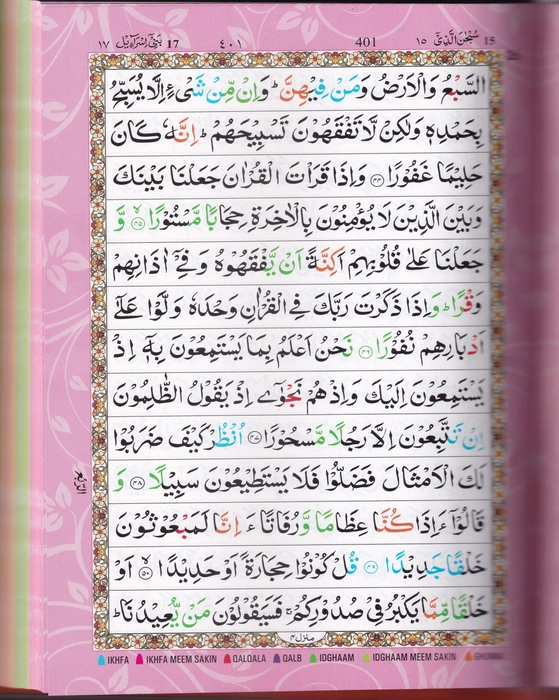 ١٧ بنی اسرآءیل 17 ٤٠١ 401 سبحن الذی ١٥ 15
السَّبْعُ وَالْاَرْضُ وَمَنْ فِيْهِنَّ ؕ وَاِنْ مِّنْ شَىْءٍ اِلَّا يُسَبِّحُ
بِحَمْدِهٖ وَلٰكِنْ لَّا تَفْقَهُوْنَ تَسْبِيْحَهُمْ ؕ اِنَّهٗ كَانَ
حَلِيْمًا غَفُوْرًا ﴿٤٤﴾ وَاِذَا قَرَاْتَ الْقُرْاٰنَ جَعَلْنَا بَيْنَكَ
وَبَيْنَ الَّذِيْنَ لَا يُؤْمِنُوْنَ بِالْاٰخِرَةِ حِجَابًا مَّسْتُوْرًا ﴿٤٥﴾ۙ وَّ
جَعَلْنَا عَلٰى قُلُوْبِهِمْ اَكِنَّةً اَنْ يَّفْقَهُوْهُ وَفِىْۤ اٰذَانِهِمْ
وَقْرًا ؕ وَاِذَا ذَكَرْتَ رَبَّكَ فِى الْقُرْاٰنِ وَحْدَهٗ وَلَّوْا عَلٰٓى
اَدْبَارِهِمْ نُفُوْرًا ﴿٤٦﴾ نَحْنُ اَعْلَمُ بِمَا يَسْتَمِعُوْنَ بِهٖۤ اِذْ
يَسْتَمِعُوْنَ اِلَيْكَ وَاِذْ هُمْ نَجْوٰٓى اِذْ يَقُوْلُ الظّٰلِمُوْنَ
اِنْ تَتَّبِعُوْنَ اِلَّا رَجُلًا مَّسْحُوْرًا ﴿٤٧﴾ اُنْظُرْ كَيْفَ ضَرَبُوْا
لَكَ الْاَمْثَالَ فَضَلُّوْا فَلَا يَسْتَطِيْعُوْنَ سَبِيْلًا ﴿٤٨﴾ وَ
قَالُوْۤا ءَاِذَا كُنَّا عِظَامًا وَّرُفَاتًا ءَاِنَّا لَمَبْعُوْثُوْنَ
خَلْقًا جَدِيْدًا ﴿٤٩﴾ قُلْ كُوْنُوْا حِجَارَةً اَوْ حَدِيْدًا ﴿٥٠﴾ۙ اَوْ
خَلْقًا مِّمَّا يَكْبُرُ فِىْ صُدُوْرِكُمْ ۚ فَسَيَقُوْلُوْنَ مَنْ يُّعِيْدُنَا ؕ
منزل ٤
IKHFA IKHFA MEEM SAKIN QALQALA QALB IDGHAAM IDGHAAM MEEM SAKIN GHUNNA